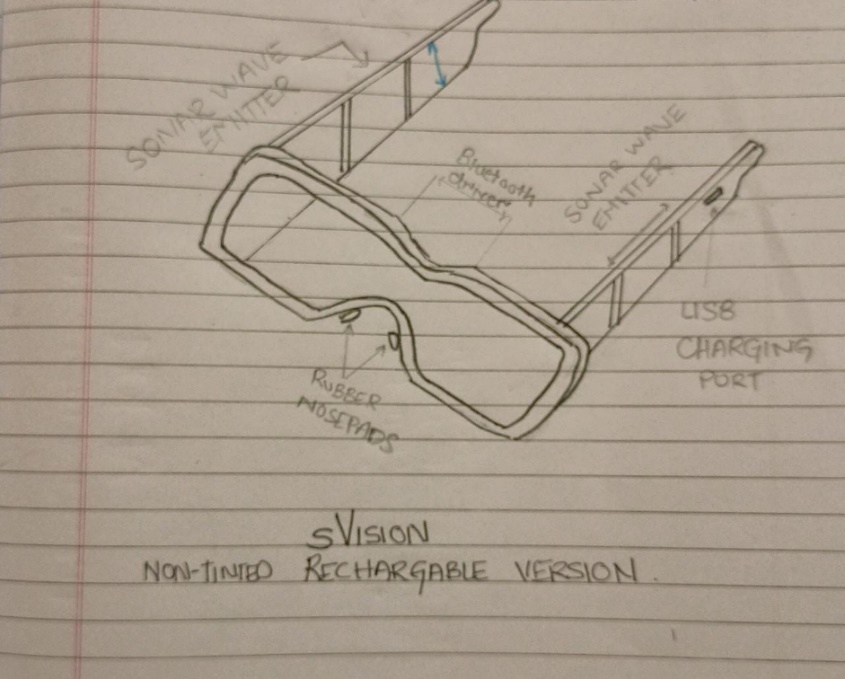 SONAR WAVE
EMITTER
Bluetooth
driver
SONAR WAVE
EMITTER
USB
CHARGING
PORT
RUBBER
NOSEPADS
sVISION
NON-TINTED RECHARGABLE VERSION.